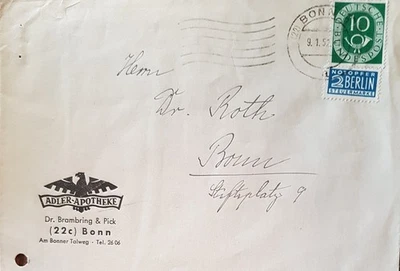 (22c) BONN
9.1.52
DEUTSCHE BUNDESPOST
10
NOTOPFER
2 BERLIN
STEUERMARKE
Herrn
Dr. Roth
Bonn
Stiftsplatz 9
ADLER-APOTHEKE
Dr. Brambring & Pick
(22c) Bonn
Am Bonner Talweg - Tel. 26 06